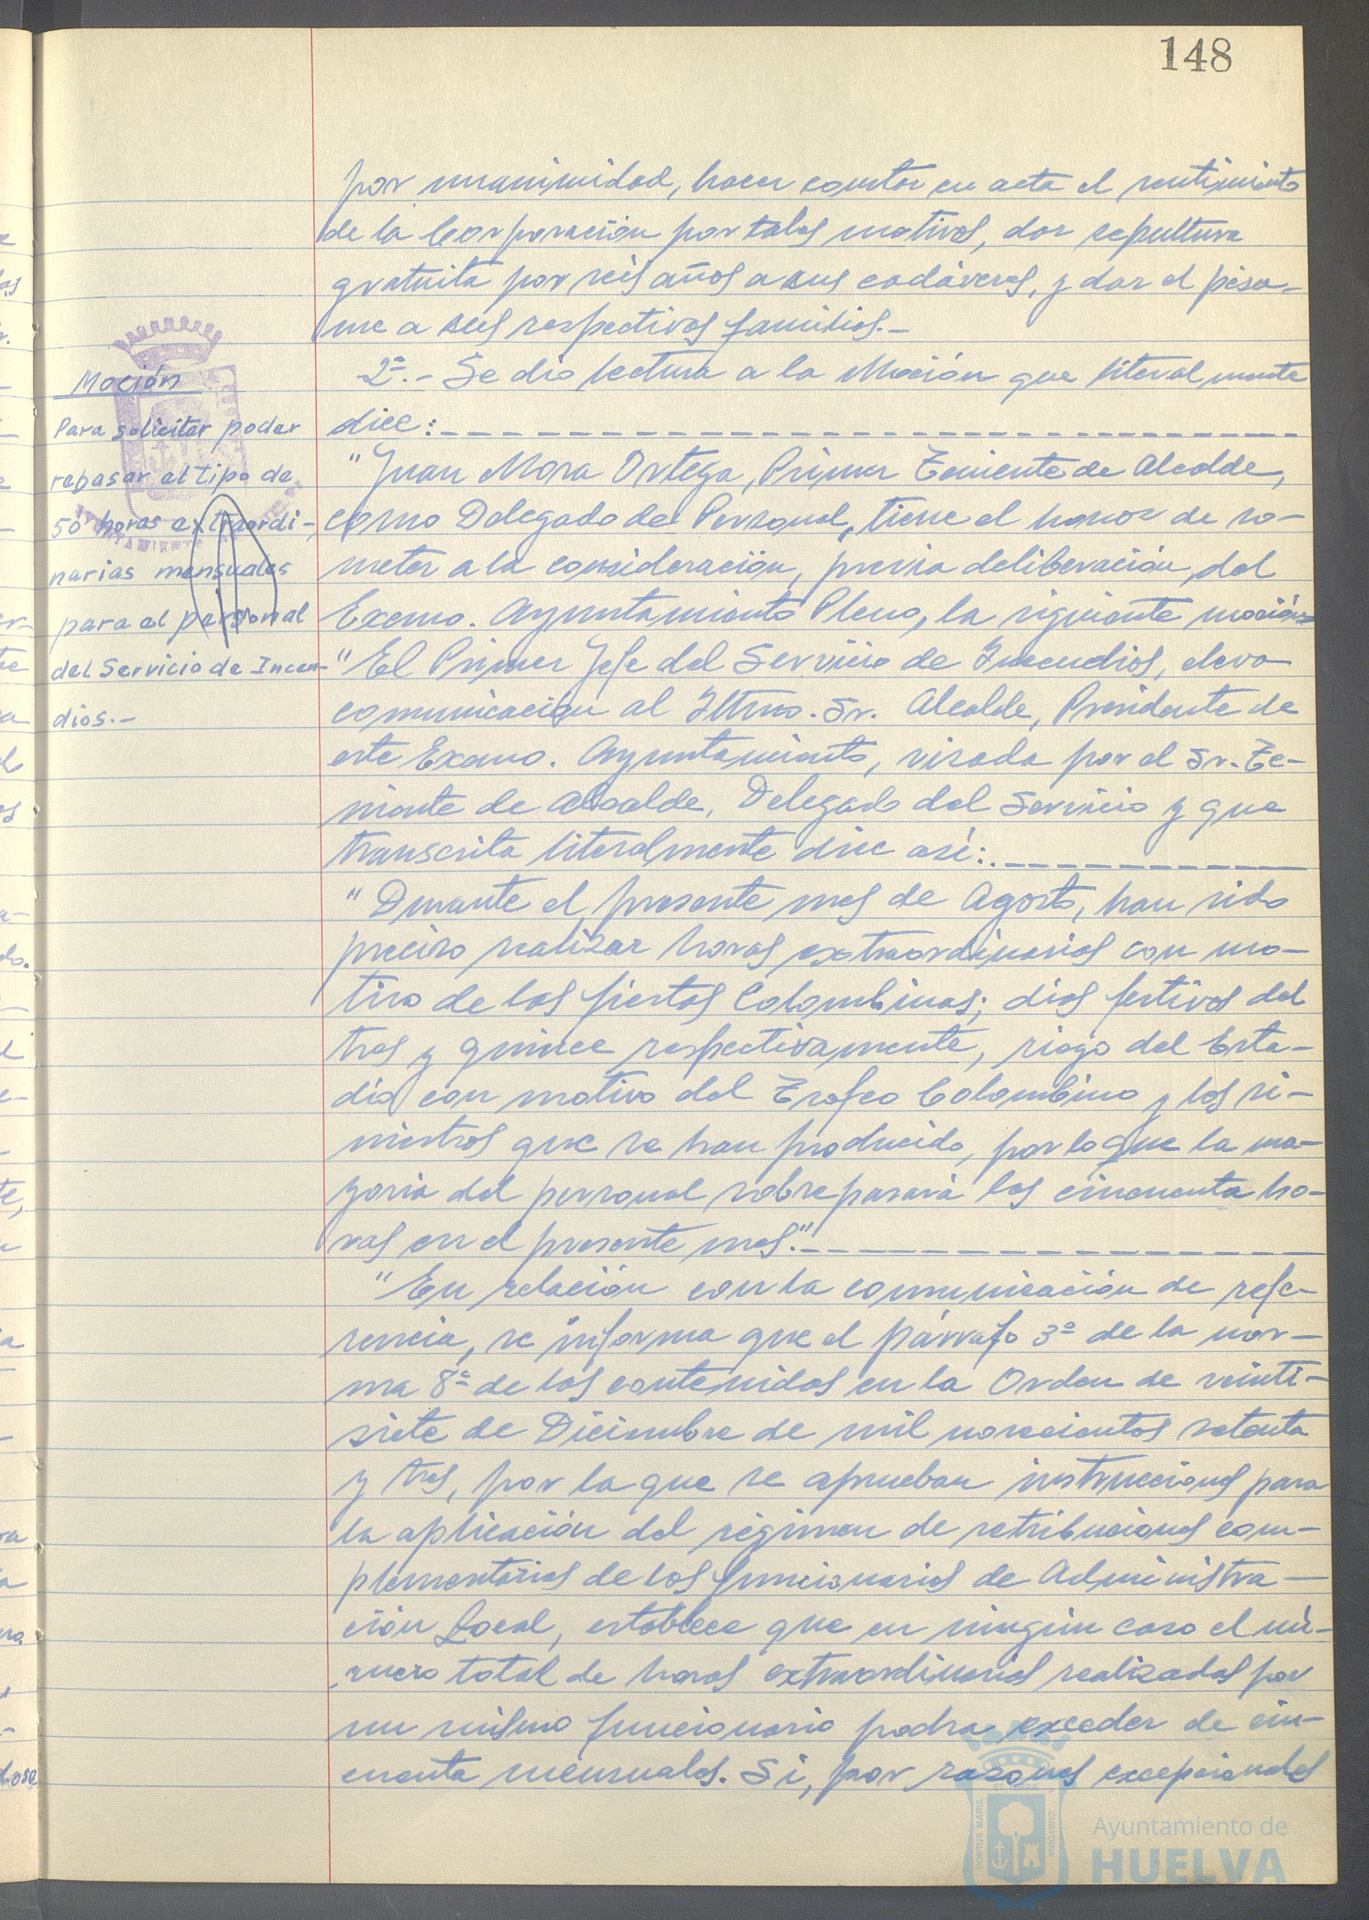 148
por unanimidad, hacer constar en acta el sentimiento
de la Corporación por tales motivos, dar sepultura
gratuita por seis años a sus cadáveres, y dar el pésa-
me a sus respectivas familias.-
Moción
Para solicitar poder
rebasar el tipo de
50 horas extraordi-
narias mensuales
para el personal
del Servicio de Incen-
dios.-
2º.- Se dió lectura a la Moción que literalmente
dice:
"Juan Mora Ortega, Primer Teniente de Alcalde,
como Delegado de Personal, tiene el honor de so-
meter a la consideración, previa deliberación, del
Excmo. Ayuntamiento Pleno, la siguiente moción:
"El Primer Jefe del Servicio de Incendios, eleva
comunicación al Iltmo. Sr. Alcalde, Presidente de
este Excmo. Ayuntamiento, visada por el Sr. Te-
niente de Alcalde, Delegado del Servicio y que
transcrita literalmente dice así:
"Durante el presente mes de Agosto, han sido
preciso realizar horas extraordinarias con mo-
tivo de las fiestas Colombinas; días festivos del
tres y quince respectivamente, riego del Esta-
dio con motivo del Trofeo Colombino y los si-
niestros que se han producido, por lo que la ma-
yoria del personal sobrepasará las cincuenta ho-
ras en el presente mes."
"En relación con la comunicación de refe-
rencia, se informa que el párrafo 3º de la nor-
ma 8ª de las contenidas en la Orden de veinti-
siete de Diciembre de mil novecientos setenta
y tres, por la que se aprueban instrucciones para
la aplicación del régimen de retribuciones com-
plementarias de los funcionarios de Administra-
ción Local, establece que en ningún caso el nú-
mero total de horas extraordinarias realizadas por
un mismo funcionario podra exceder de cin-
cuenta mensuales. Si, por razones excepcionales
PORTUS MARIS
CUSTODIA
Ayuntamiento de
HUELVA